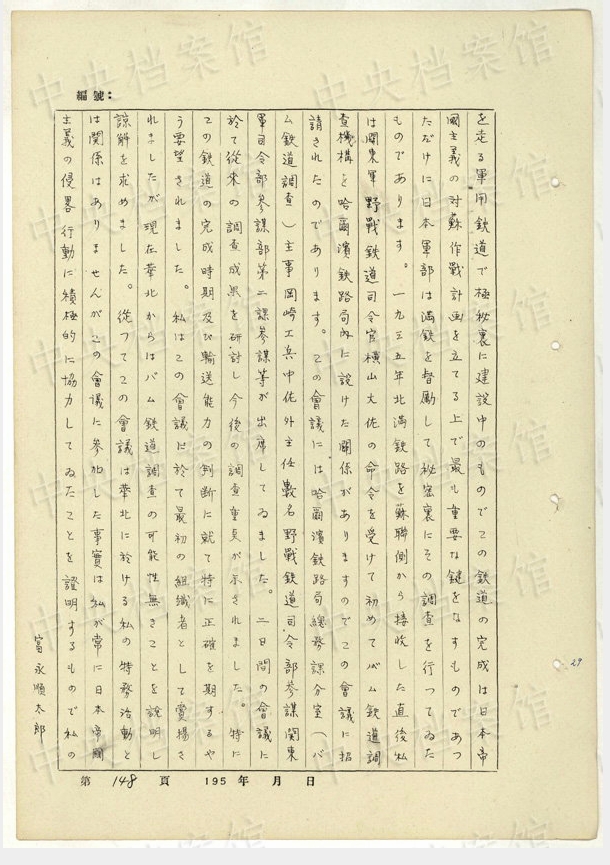 編號:
を走る軍用鉄道で極秘裏に建設中のものでこの鉄道の完成は日本帝
國主義の対蘇作戦計画を立てる上で最も重要な鍵をなすものであつ
ただけに日本軍部は満鉄を督励して秘密裏にその調査を行つてゐた
ものであります。一九三五年北満鉄路を蘇聯側から接收した直後私
は関東軍野戰鉄道司令官横山大佐の命令を受けて初めてバム鉄道調
査機構を哈爾濱鉄路局内に設けた関係がありますのでこの會議に招
請されたのであります。この會議には哈爾濱鉄路局總務課分室(バ
ム鉄道調査)主事岡崎工兵中佐外主任數名野戰鉄道司令部参謀関東
軍司令部参謀部第二課参謀等が出席してゐました。二日間の會議に
於て従来の調査成果を研討し今後の調査重点が示されました。特に
この鉄道の完成時期及び輸送能力の判断に就て特に正確を期するや
う要望されました。私はこの會議に於て最初の組織者として賞揚さ
れましたが現在華北からはバム鉄道調査の可能性無きことを説明し
諒解を求めました。従つてこの會議は華北に於ける私の特務活動と
は関係はありませんがこの會議に参加した事實は私が常に日本帝國
主義の侵畧行動に積極的に協力してゐたことを證明するもので私の
富永順太郎
29
第 148 頁 195 年 月 日
中央档案馆